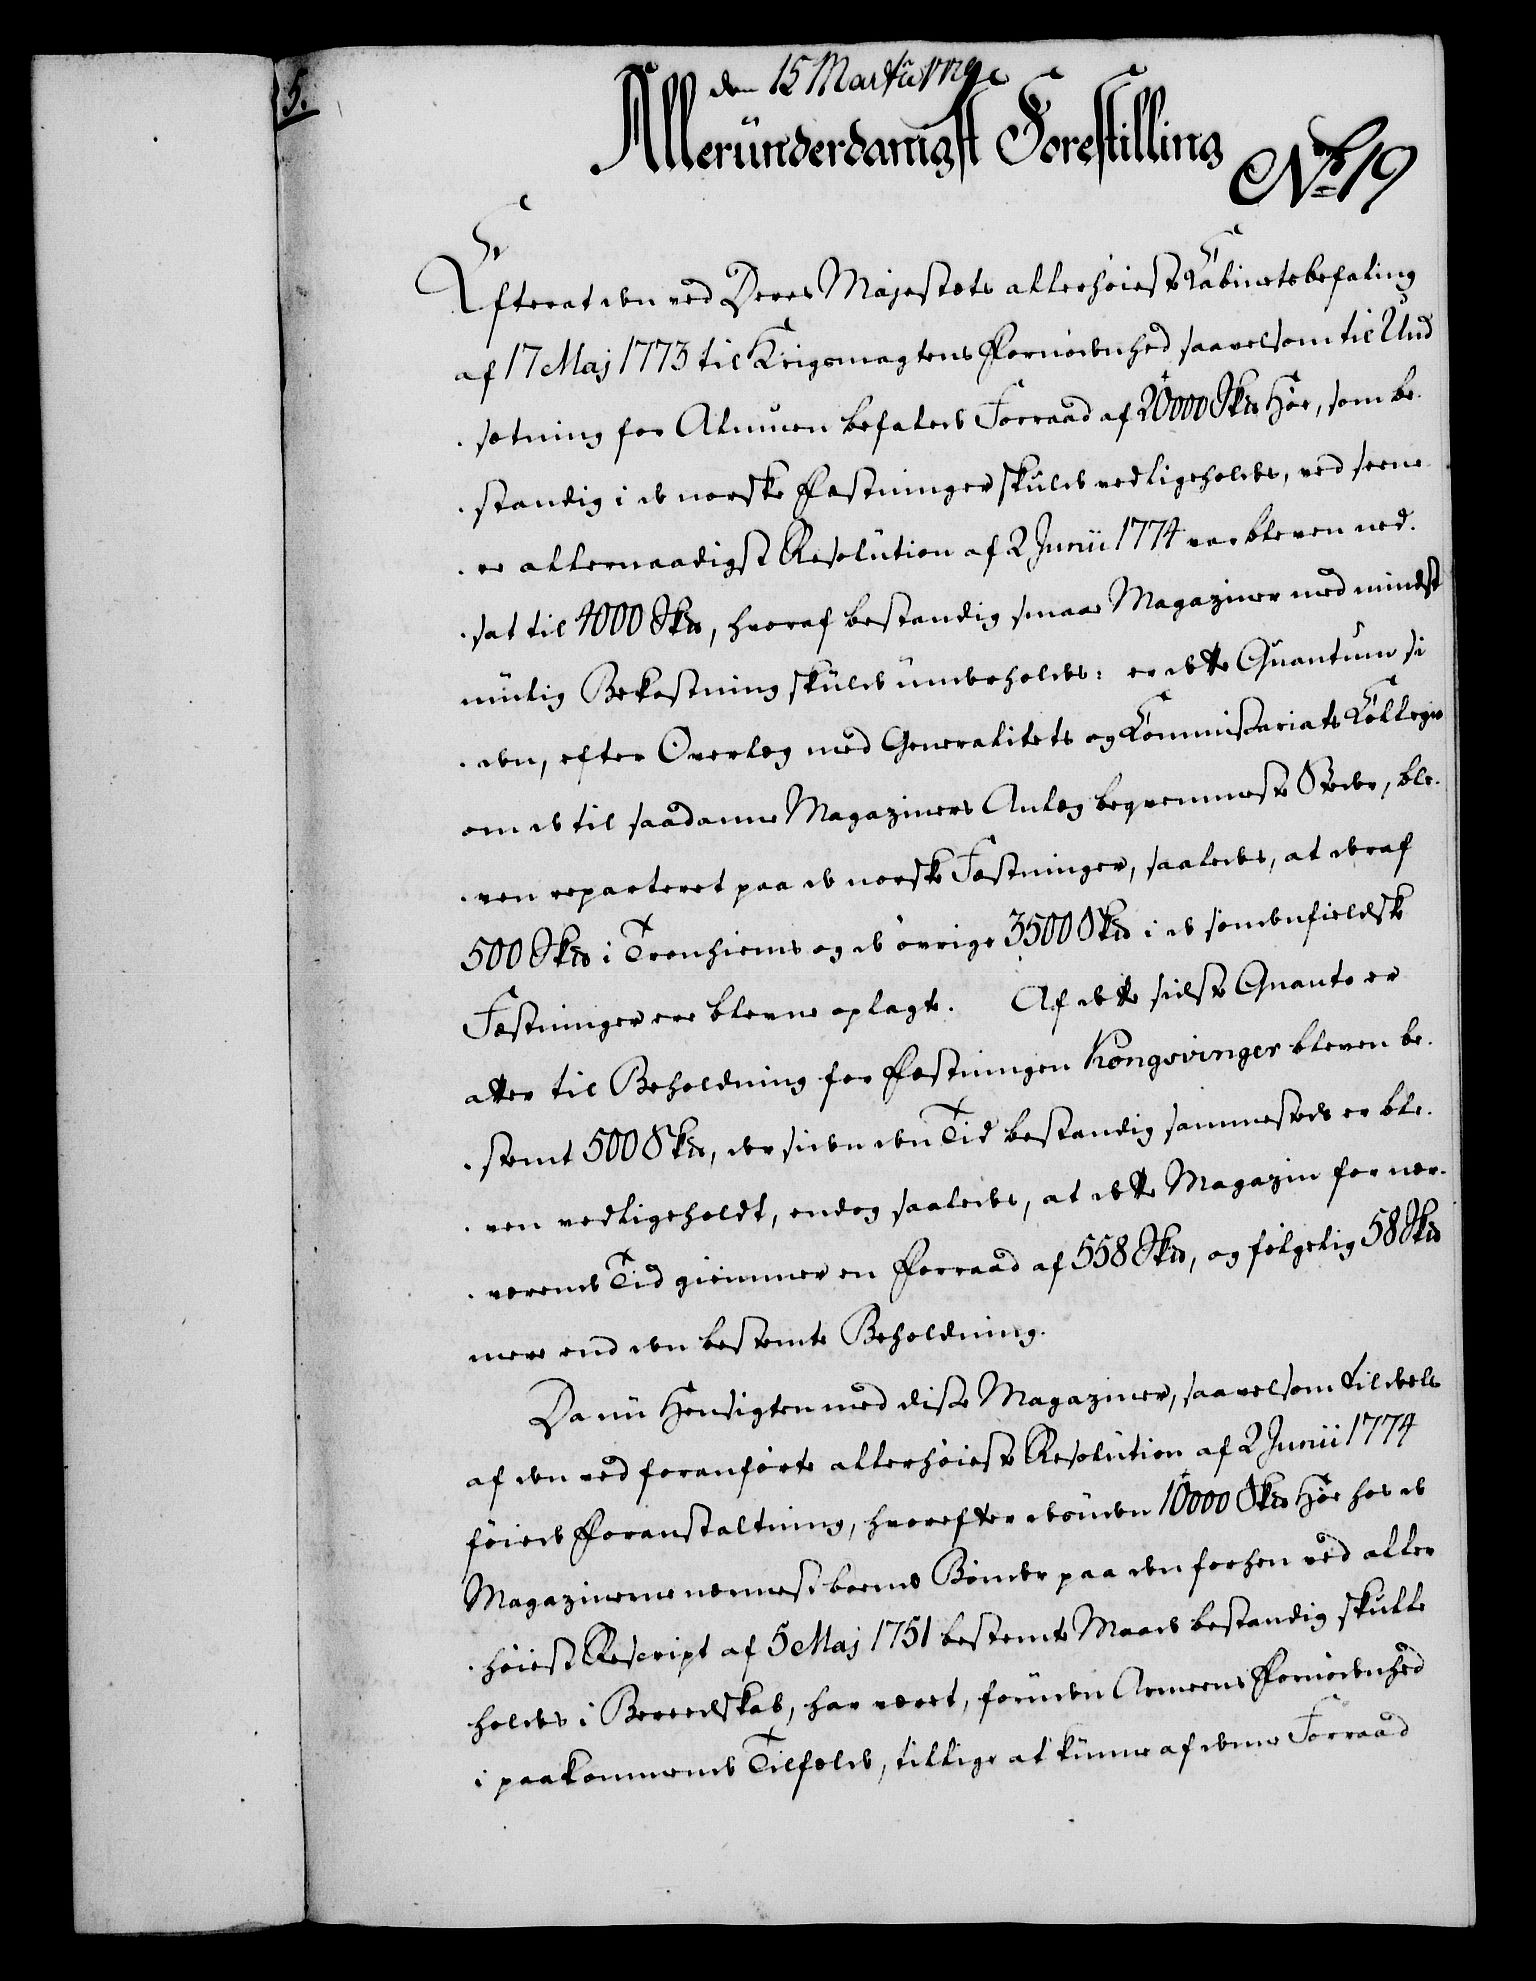 5.
den 15 Martii
Alleründerdanigst Forestilling
No 19
Efterat den ved Deres Majestets allerhøieste Kabinetsbefaling
af 17 Maj 1773 til Krigsmagtens Fornødenhed saavelsom til Und
. sætning for Almuen befalede Forraad af 20000 Sk℔ Høe, som be-
. standig i de norske Fæstninger skulde vedligeholdes, ved seene-
. re allernaadigst Resolution af 2 Junii 1774 var bleven ned-
. sat til 4000 Sk℔, hvoraf bestandig smaae Magaziner med mindst
mülig Bekostning skülde ünderholdes: er dette Quantum si
. den, efter Overlæg med Generalitets og Kommissariats Kollegio
om de til saadanne Magaziners Anlæg beqvemmeste Stæder, ble-
. ven reparteret paa de norske Fæstninger, saaledes, at deraf
500 Sk℔ i Tronhiems og de øvrige 3500 Sk℔ i de søndenfieldske
Fæstninger ere blevne oplagte. Af dette sidste Quanto er
atter til Beholdning for Fæstningen Kongsvinger bleven be-
. stemt 500 Sk℔, der siden den Tid bestandig sammesteds er ble-
. ven vedligeholdt, endog saaledes, at dette Magazin for nær-
. værende Tid giemmer en Forraad af 558 Sk℔, og følgelig 58 Sk℔
mere end den bestemte Beholdning.
Da nü Hensigten med disse Magaziner, saavelsom tildeels
af den ved foranførte allerhøieste Resolution af 2 Junii 1774
føiede Foranstaltning, hvorefter desüden 10000 Sk℔ Høe hos de
Magazinerne nærmest boende Bønder paa den forhen ved aller
. høiest Rescript af 5 Maj 1751 bestemte Maade bestandig skulle
holdes i Beredskab, har været, foruden Armeens Fornødenhed
i paakommende Tilfælde, tillige at künne af denne Forraad